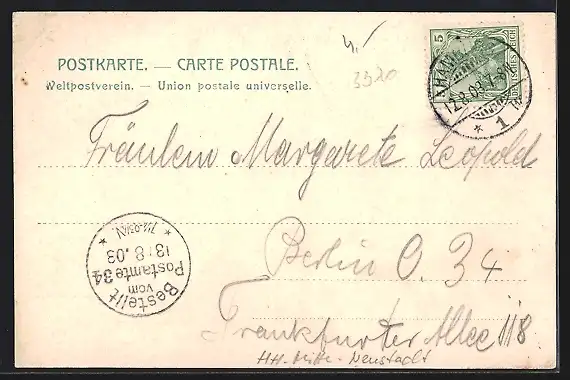 POSTKARTE. — CARTE POSTALE.
Weltpostverein. — Union postale universelle.
3320
5
HAM
12.8.03. 7-8N
* 1 *
DEUTSCHES REICH
Fräulein Margarete Leopold
Berlin O. 34
Frankfurter Allee 118
HH-Mitte-Neustadt
Bestellt
vom
Postamte 34
13.8.03
7½-9¼V.